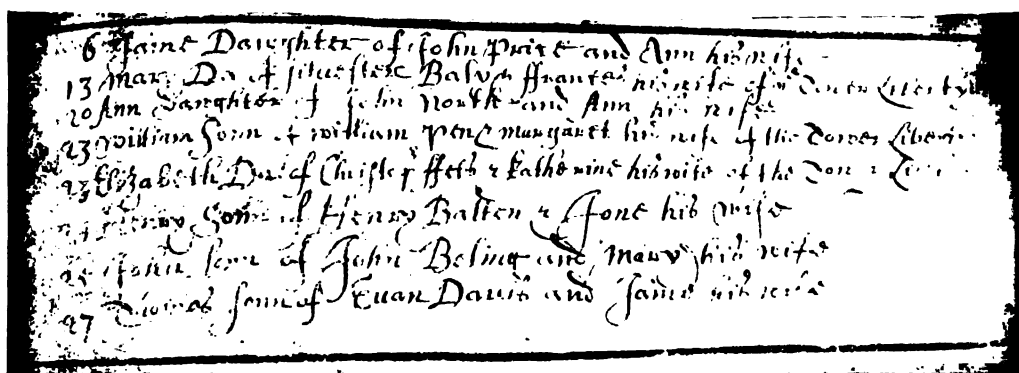 6 Jaine Daughter of John Price and Ann his wife
13 Mary Da of silvester Bal & ffrances his wife of ye Tower Liberty
20 Ann Daughter of John North and Ann his wife
23 William Sonn of William Pen & Margaret his wife of the Tower Liberty
23 Elizabeth Da of ffets & Katherine his wife of the Tower
Henry Sonn of Henry Balten & Jone his wife
25 John sonn of John Beling and Mary his wife
27 Thomas sonn of Evan Davis and Jaine his wife